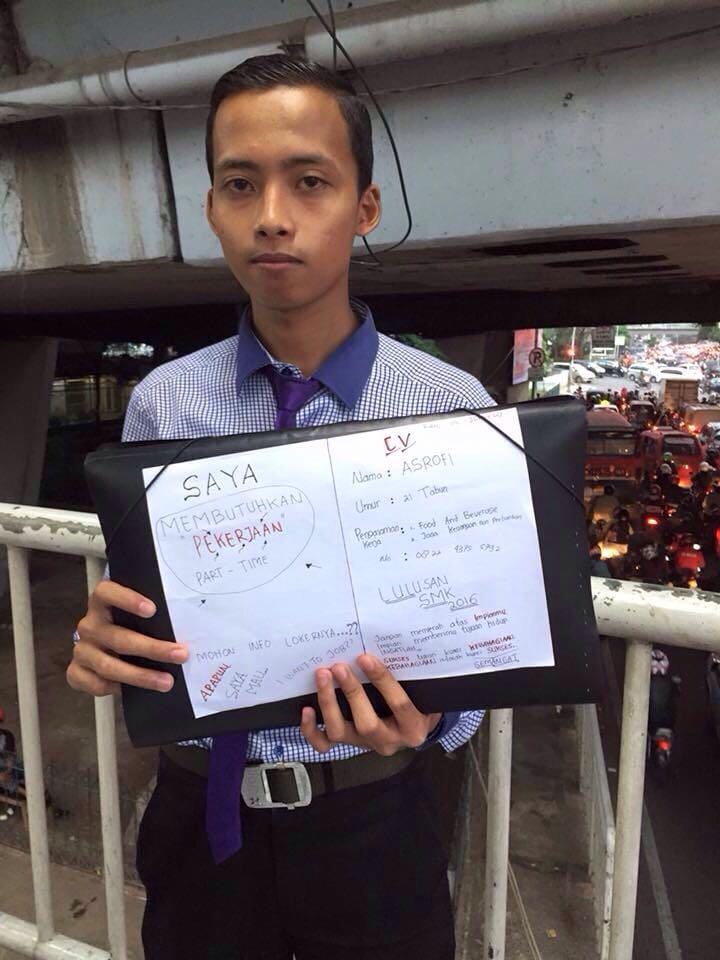 SAYA
MEMBUTUHKAN
"PEKERJAAN"
PART - TIME
MOHON INFO LOKERNYA...??
APAPUN
SAYA
MALL
I WANT TO JOB??
CV
Nama : ASROFI
Umur : 21 Tahun
Pengalaman : Food And Beverage
Kerja Jasa Keuangan dan Perbankan
LULUSAN
SMK
2016
Jangan menyerah atas Impianmu
Impian memberimu tujuan hidup
INGATLAH
SUKSES bukan kunci KEBAHAGIAAN
KEBAHAGIAAN adalah kunci SUKSES.
SEMANGAT
P